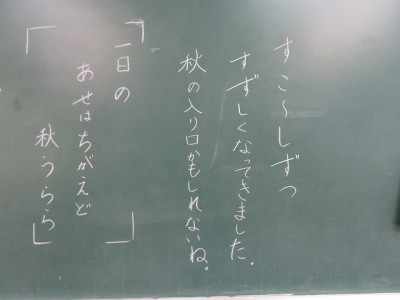 すこ〜しずつ
すずしくなってきました。
秋の入り口かもしれないね。
「一日の
あせはちがえど
秋うらら」